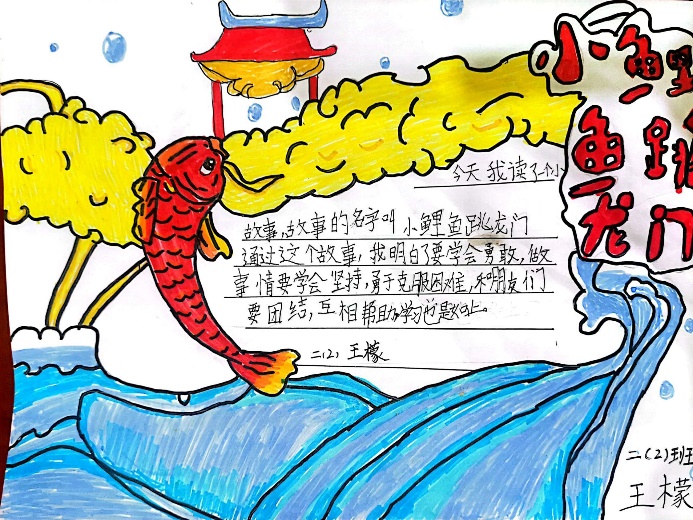 小鲤
鱼跳
龙门
今天我读了一个小
故事,故事的名字叫小鲤鱼跳龙门
通过这个故事,我明白了要学会勇敢,做
事情要学会坚持,勇于克服困难,和朋友们
要团结,互相帮助,学习也是如此。
二(2)王檬
二(2)班
王檬